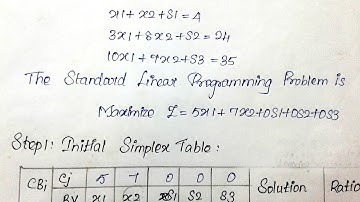 x1 + x2 + S1 = 4
3x1 + 8x2 + S2 = 24
10x1 + 7x2 + S3 = 35
The Standard Linear Programming Problem is
Maximize Z = 5x1 + 7x2 + 0S1 + 0S2 + 0S3
Step1: Initial Simplex Table:
CBi Cj 5 7 0 0 0 Solution Ratio
BV x1 x2 S1 S2 S3